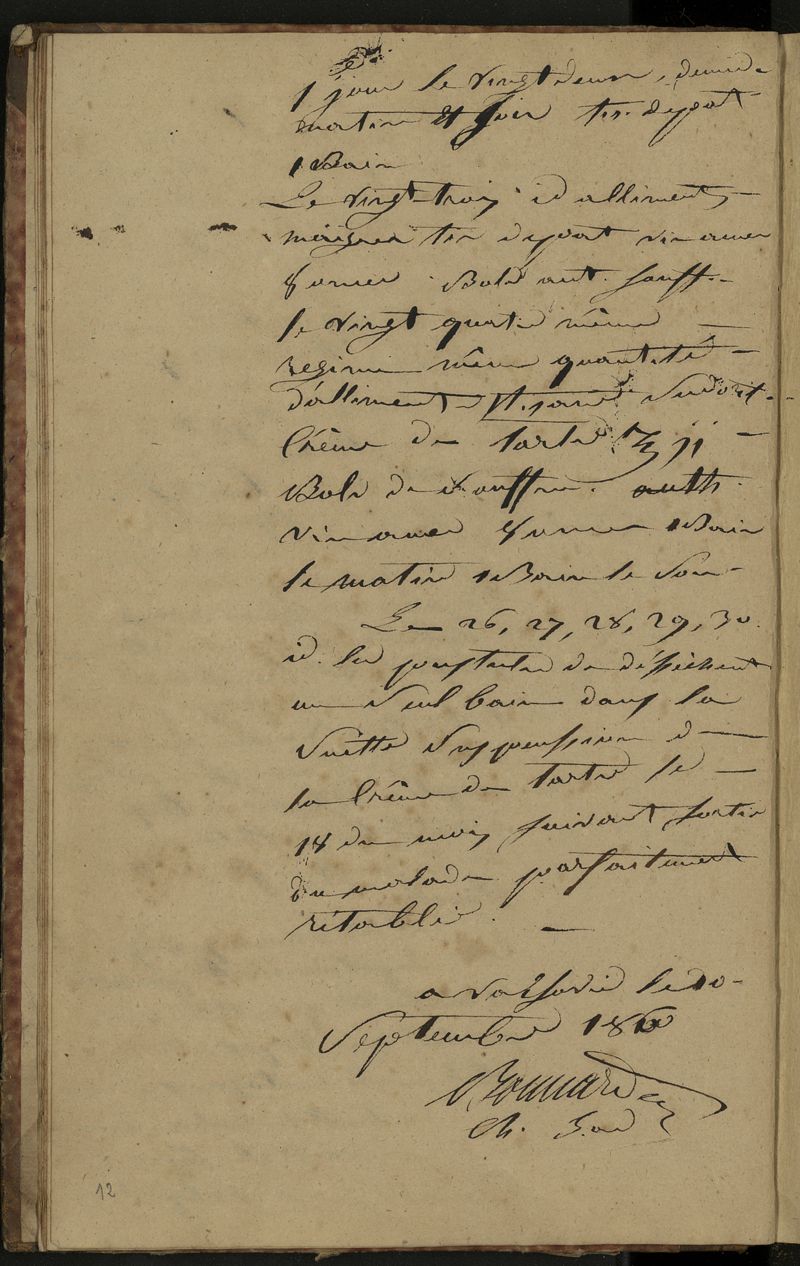 1 jour le vingt deux, demie
matin et soir tis. depot
1 Bain
Le vingt trois id alliments
maigres tis depot vin amer
8 onces Bols ant. souff.
le vingt quatre même
regime même quantité
d'alliments tisane sudorit
Crême de tartre ʒ ij
Bols de souffre. auth.
vin amer 8 onces 1 Bain
le matin 1 Bain le soir
Les 26, 27, 28, 29, 30
id. les poustules se déssichent
un seul bain dans la
suitte suppression de
la Crême de tartre le
18 du mois suivant sortie
du malade parfaitement
rétablie.
a varsovie le 10
Septembre 1810
Bonnard
Ch.
12